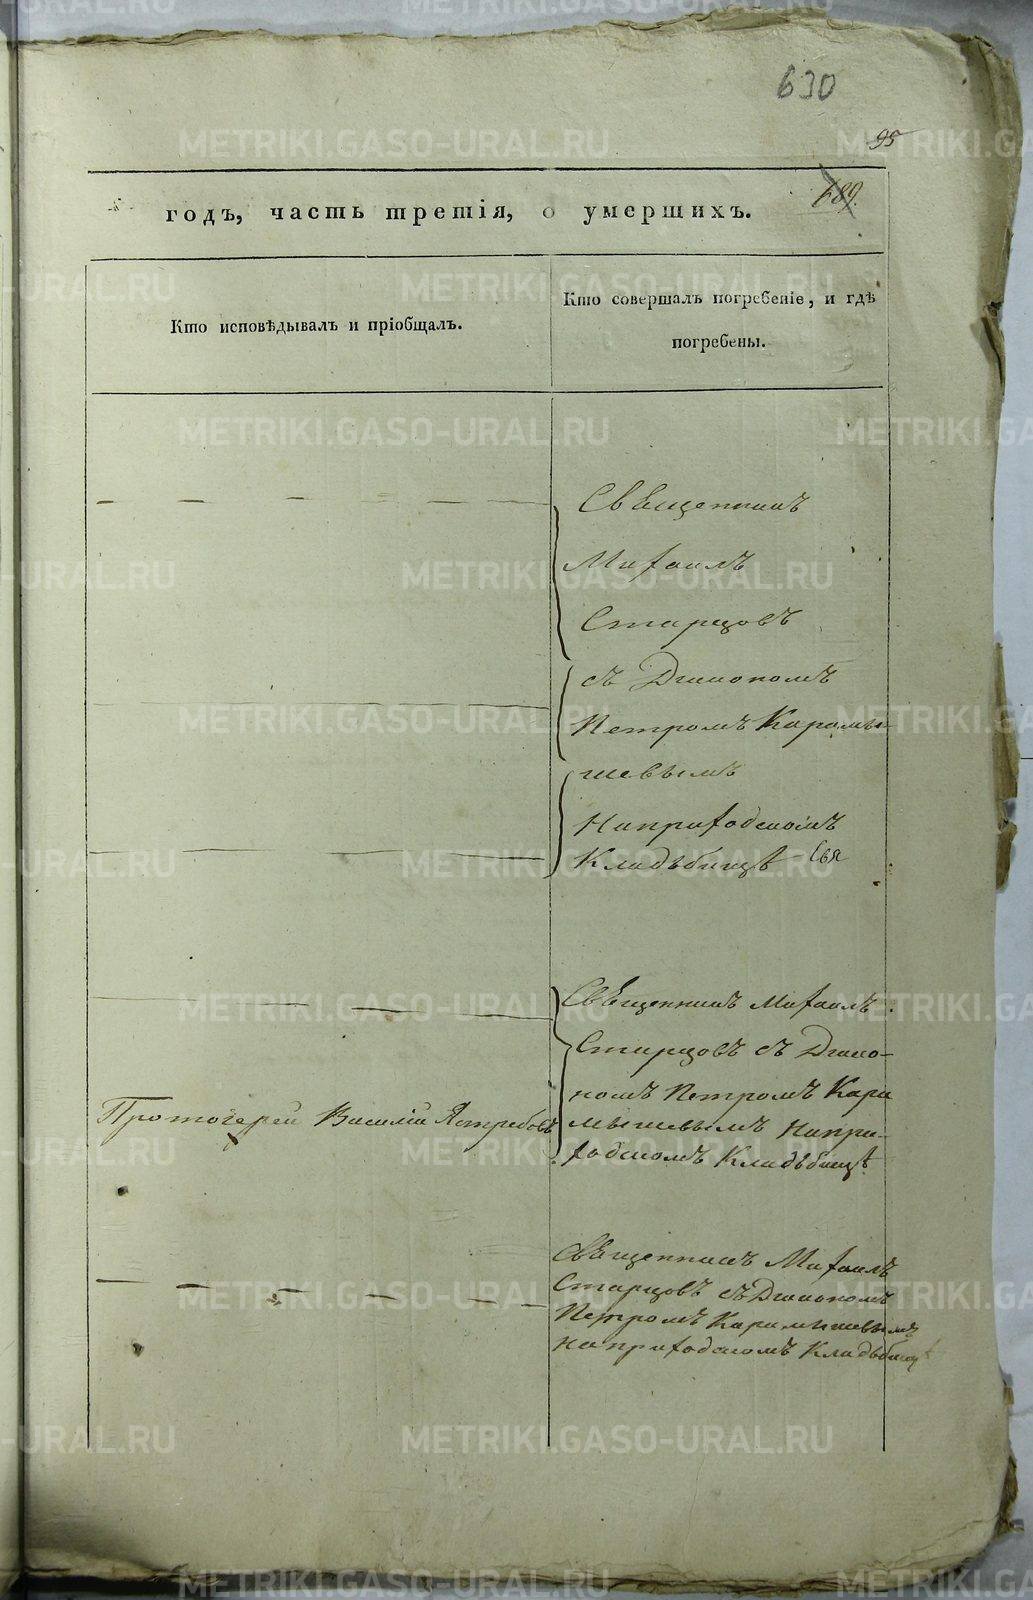 630
95
689.
годъ, часть третія, о умершихъ.
Кто исповѣдывалъ и пріобщалъ.
Кто совершалъ погребеніе, и гдѣ
погребены.
Священникъ
Михаилъ
Старцовъ
съ Дьякономъ
Петромъ Карамы-
шевымъ
На приходскомъ
Кладьбищѣ
Священникъ Михаилъ
Старцовъ съ Дьяко-
номъ Петромъ Кара
мышевымъ На при-
ходскомъ Кладьбищѣ
Протоіерей Василій Ястребовъ
Священникъ Михаилъ
Старцовъ съ Дьякономъ
Петромъ Карамышевымъ
На приходскомъ Кладьбищѣ
METRIKI.GASO-URAL.RU